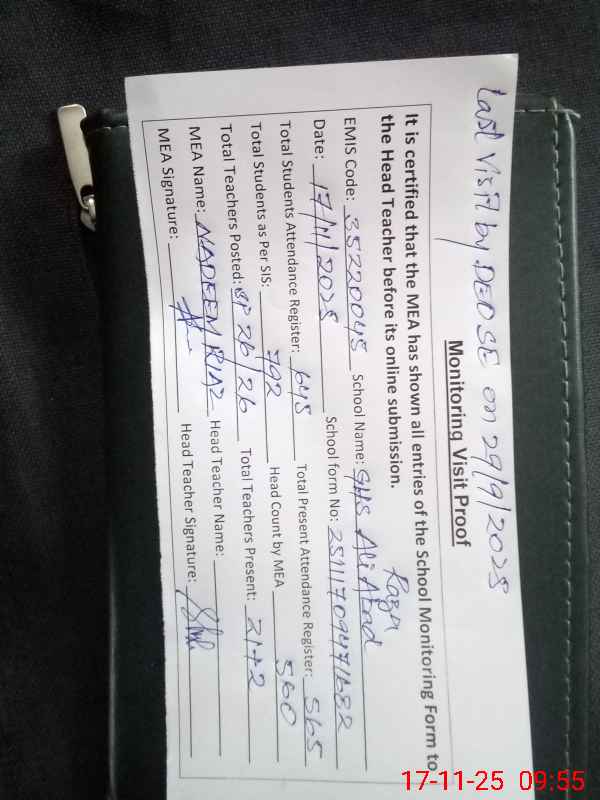 Last visit by DEO SE on 29/9/2025
Monitoring Visit Proof
It is certified that the MEA has shown all entries of the School Monitoring Form to
the Head Teacher before its online submission.
Raza
EMIS Code: 35220045 School Name: GHS Ali Abad
Date: 17/11/2025 School form No: 25111709471682
Total Students Attendance Register: 645 Total Present Attendance Register: 565
Total Students as Per SIS: 792 Head Count by MEA 560
Total Teachers Posted: 26/26 Total Teachers Present: 21+2
MEA Name: NADEEM RIAZ Head Teacher Name:
MEA Signature: Head Teacher Signature:
17-11-25 09:55